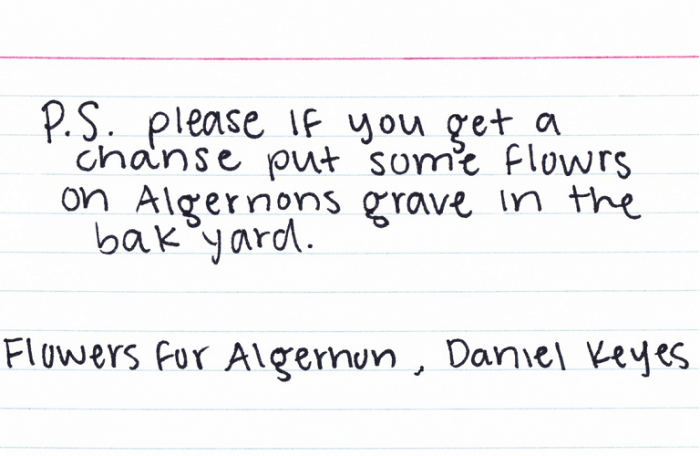 P.S. please IF you get a
chanse put some flowrs
on Algernons grave in the
bak yard.
Flowers for Algernon, Daniel Keyes